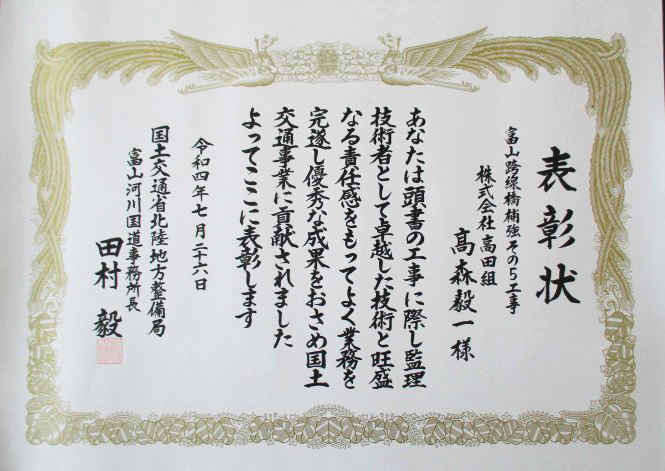 表彰状
富山跨線橋補強その5工事
株式会社高田組
髙森毅一様
あなたは頭書の工事に際し監理
技術者として卓越した技術と旺盛
なる責任感をもってよく業務を
完遂し優秀な成果をおさめ国土
交通事業に貢献されました
よってここに表彰します
令和四年七月二十六日
国土交通省北陸地方整備局
富山河川国道事務所長
田村毅